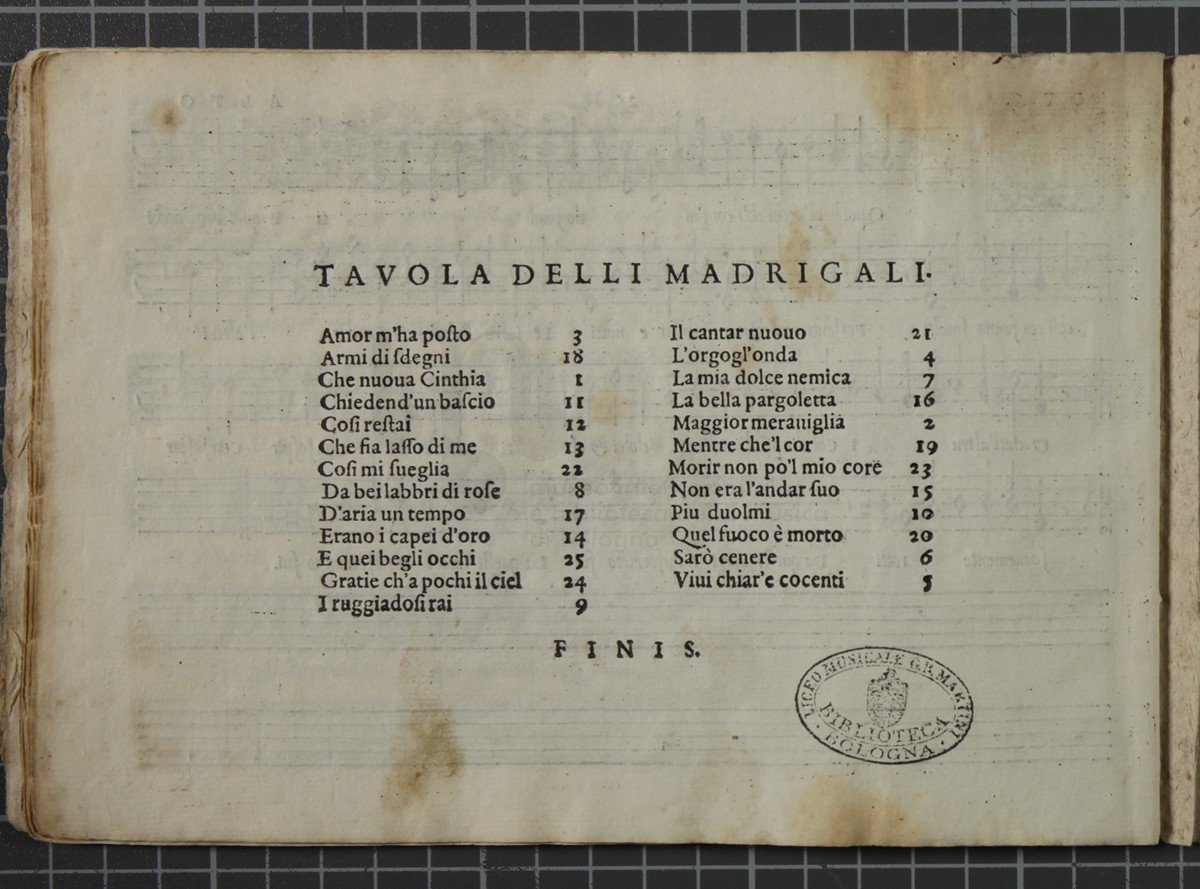 TAVOLA DELLI MADRIGALI.
Amor m'ha poſto 3
Armi di ſdegni 18
Che nuoua Cinthia 1
Chiedend'un baſcio 11
Coſi reſtai 12
Che fia laſſo di me 13
Coſi mi ſueglia 22
Da bei labbri di roſe 8
D'aria un tempo 17
Erano i capei d'oro 14
E quei begli occhi 25
Gratie ch'a pochi il ciel 24
I ruggiadoſi rai 9
Il cantar nuouo 21
L'orgogl'onda 4
La mia dolce nemica 7
La bella pargoletta 16
Maggior merauiglia 2
Mentre che'l cor 19
Morir non po'l mio core 23
Non era l'andar ſuo 15
Piu duolmi 10
Quel fuoco è morto 20
Sarò cenere 6
Viui chiar'e cocenti 5
FINIS.
LICEO MUSICALE G.B. MARTINI
BIBLIOTECA
BOLOGNA